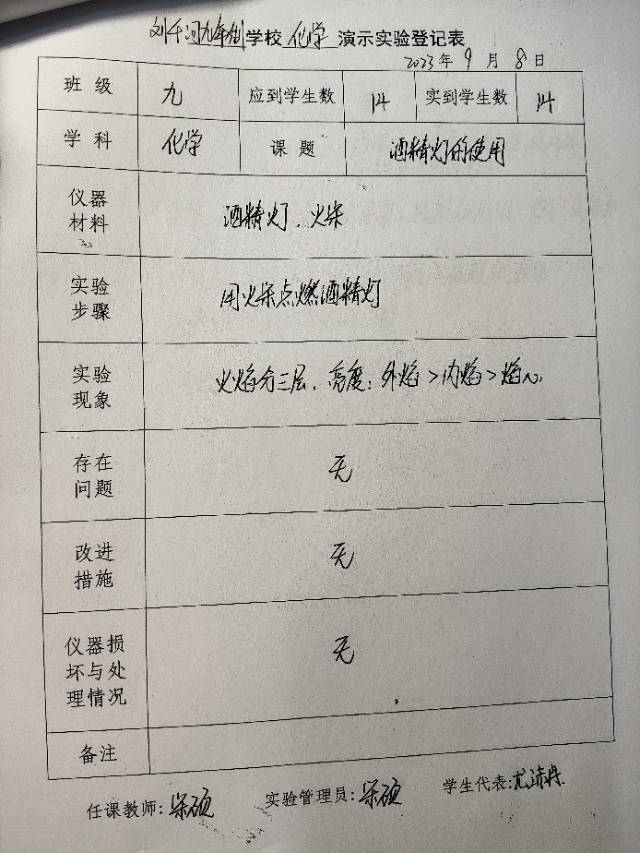 刘千河九年制学校 化学 演示实验登记表
2023年 9 月 8 日
班 级 九 应到学生数 14 实到学生数 14
学 科 化学 课 题 酒精灯的使用
仪器
材料
酒精灯、火柴
实验
步骤
用火柴点燃酒精灯
实验
现象
火焰分三层,亮度:外焰>内焰>焰心.
存在
问题
无
改进
措施
无
仪器损
坏与处
理情况
无
备注
任课教师: 实验管理员: 学生代表: